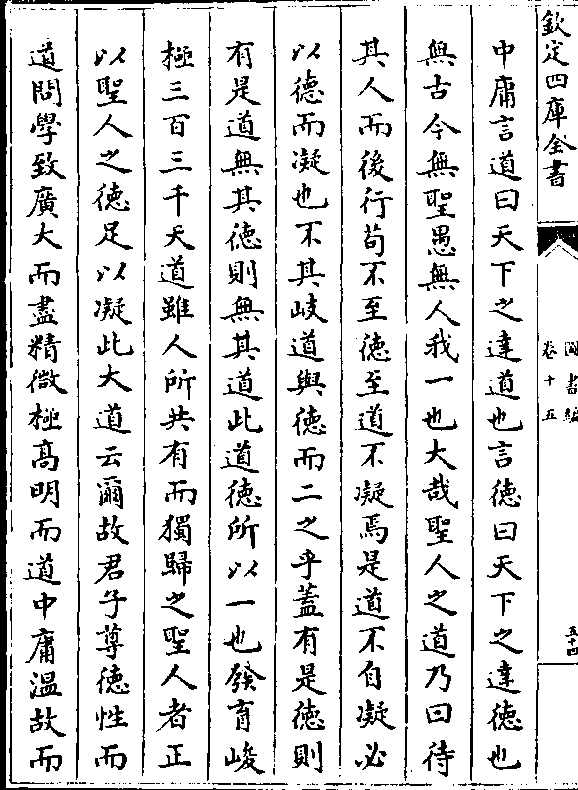 欽定四庫全書
圖書編
卷十五
五十四
中庸言道曰天下之達道也言德曰天下之達德也
無古今無聖愚無人我一也大哉聖人之道乃曰待
其人而後行苟不至德至道不凝焉是道不自凝必
以德而凝也不其岐道與德而二之乎蓋有是德則
有是道無其德則無其道此道德所以一也發育峻
極三百三千天道雖人所共有而獨歸之聖人者正
以聖人之德足以凝此大道云爾故君子尊德性而
道問學致廣大而盡精微極高明而道中庸溫故而